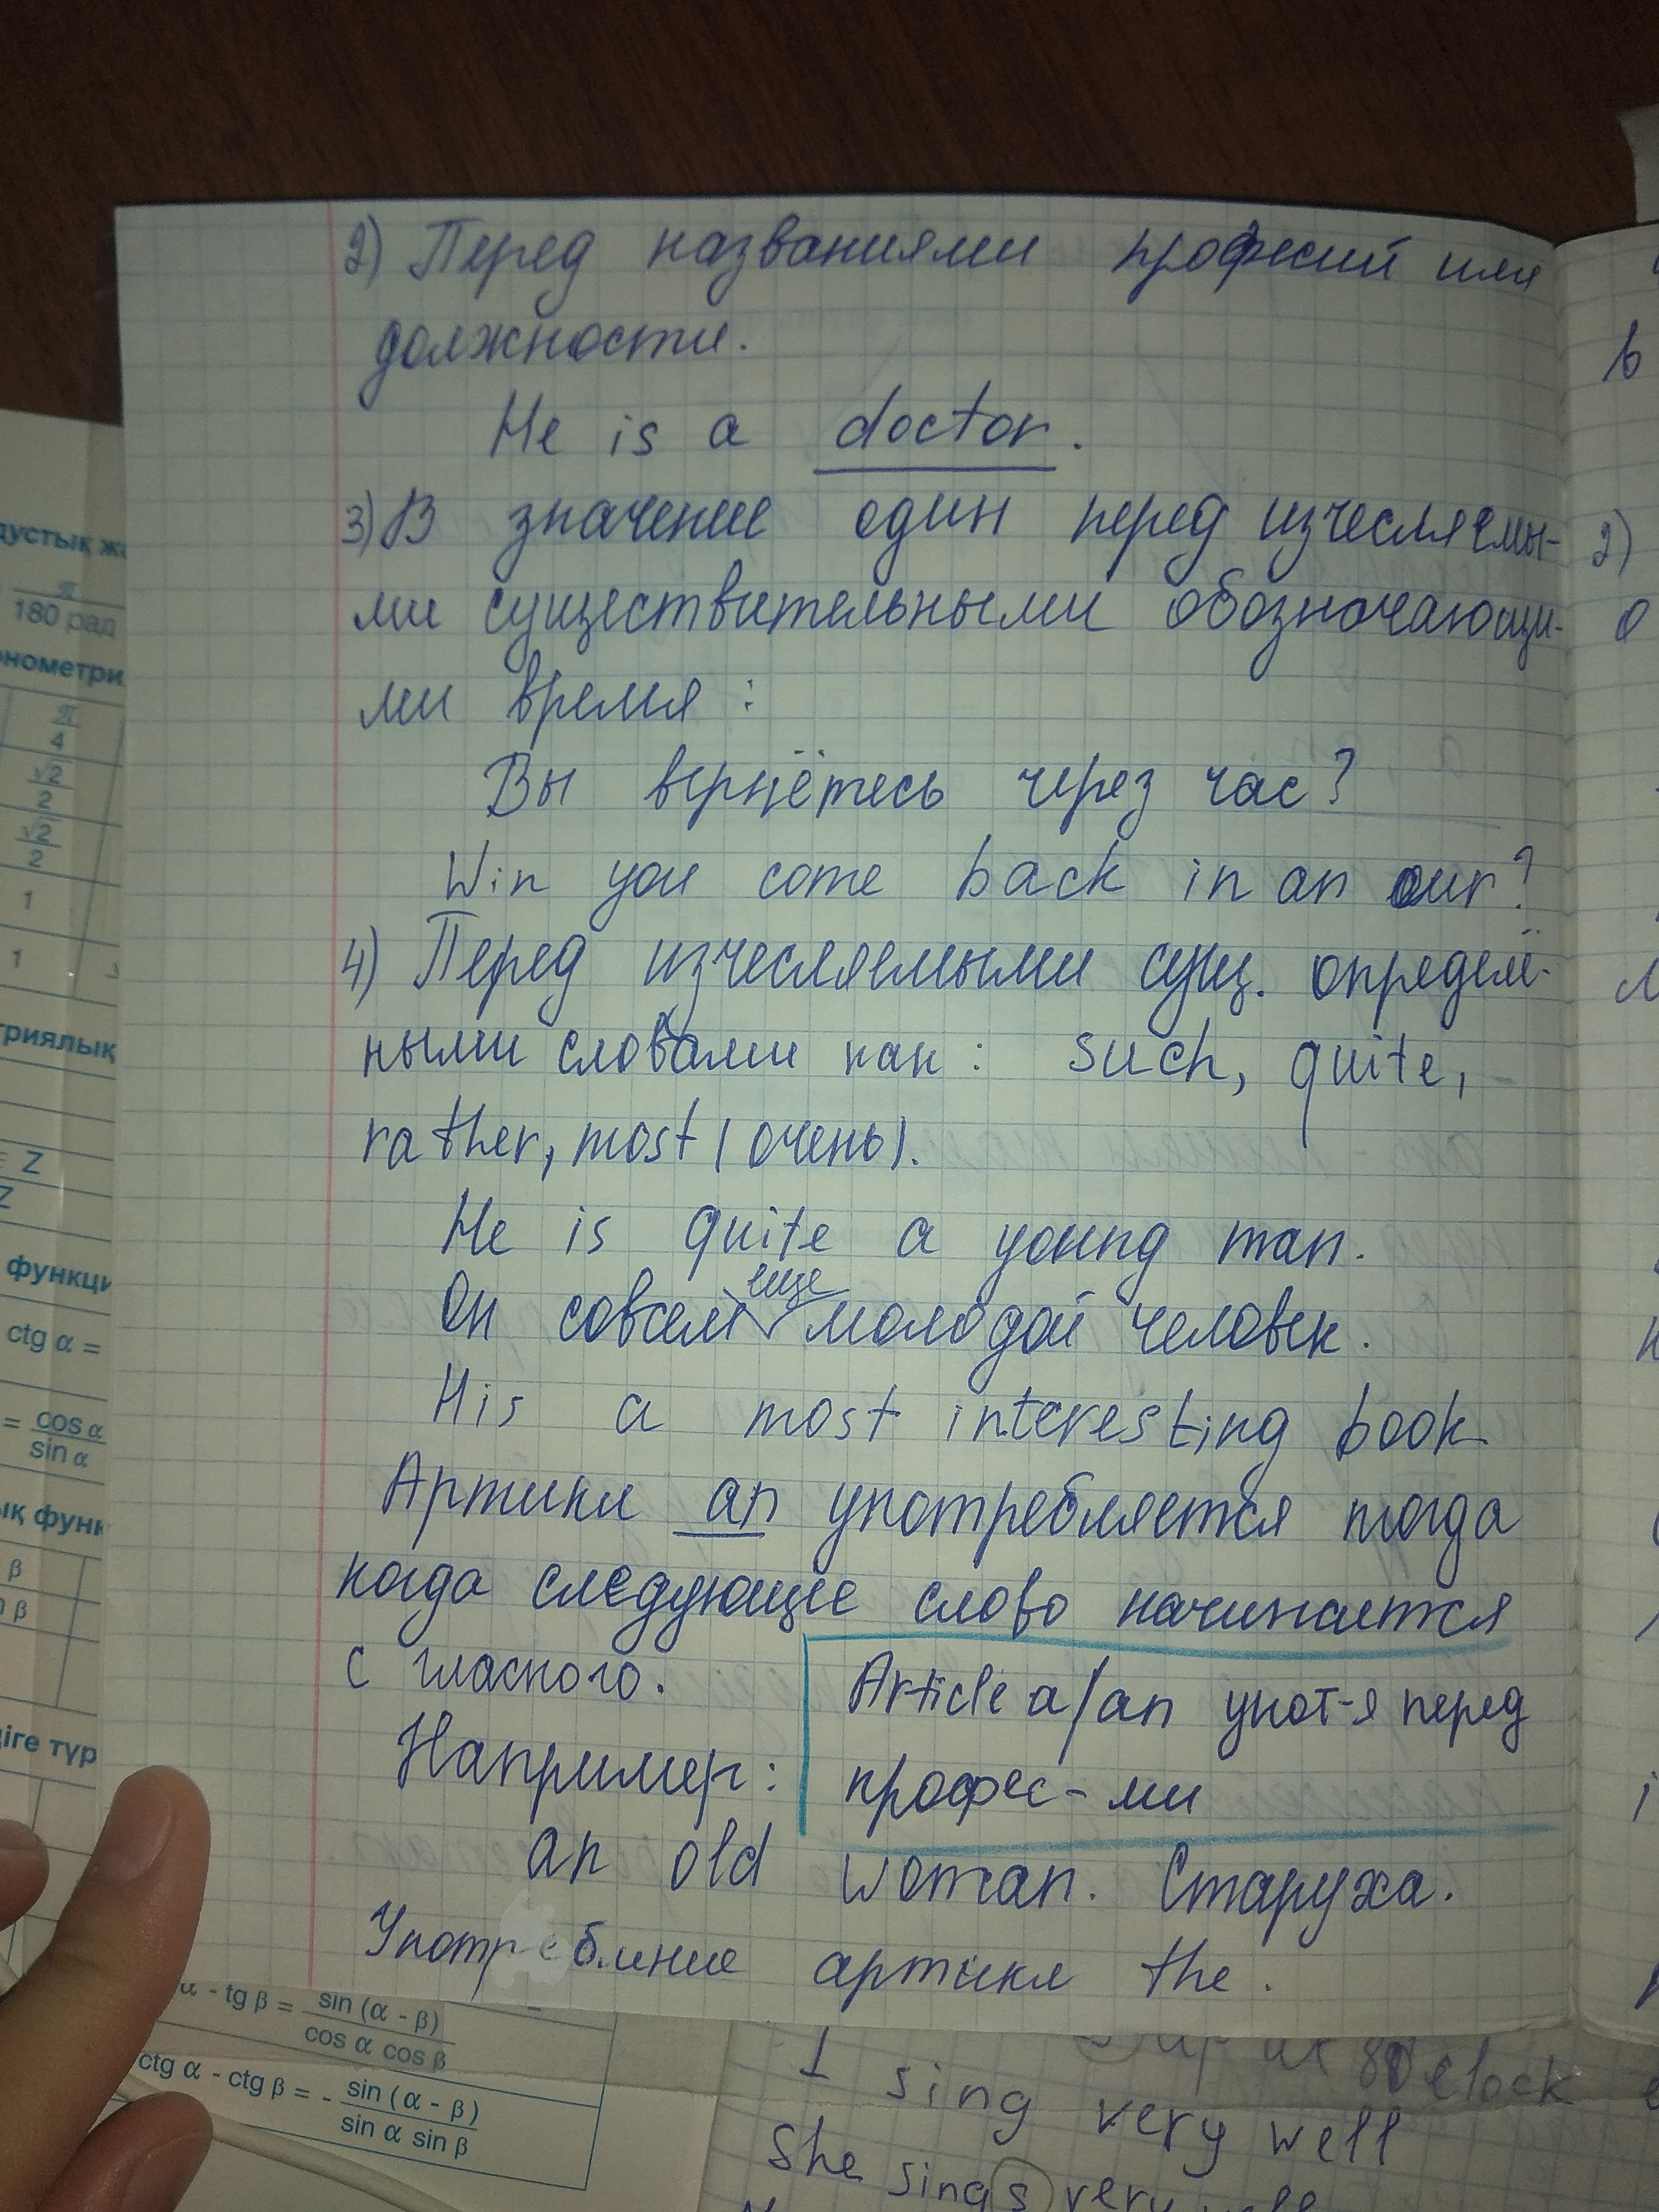 2) Перед названиями професий или
должности.
He is a doctor.
3) В значение один перед изчесляемы-
ми существительными обозначающи-
ми время:
Вы вернётесь через час?
Win you come back in an our?
4) Перед изчесляемыми сущ. определё-
ными словами как: such, quite,
rather, most (очень).
He is quite a young man.
Он совсем еще молодой человек.
His a most interesting book
Артикл an употребляется тогда
когда следующее слово начинается
с гласного.
Article a/an упот-я перед
професс-ми
Например:
an old woman. Старуха.
Употребление артикл the.
дустық
π
180 рад
нометри
π
4
√2
2
√2
2
1
1
риялық
Z
Z
функци
ctg α =
= cos α
sin α
ық функ
β
β
іге түр
α - tg β = sin (α - β)
cos α cos β
ctg α - ctg β = - sin (α - β)
sin α sin β
up at 8 o'clock
I sing very well
She sings very well
2)